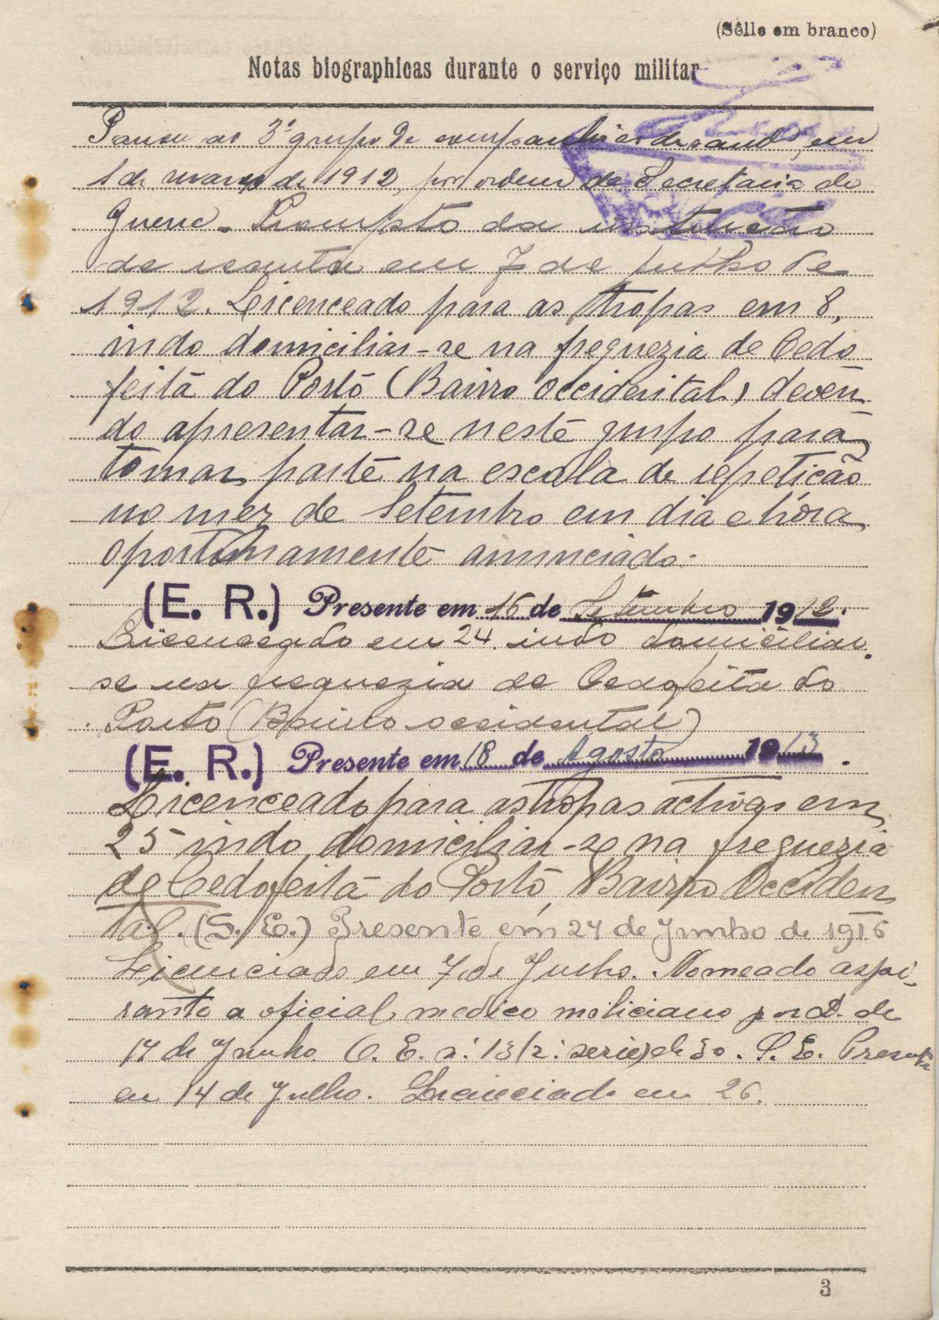 (Sêllo em branco)
Notas biographicas durante o serviço militar
Passou ao 3º grupo de companhias de saude, em
1 de março de 1912, por ordem da Secretaria da
Guerra. Prompto da instrucção
de recruta em 7 de Julho de
1912. Licenceado para as tropas em 8,
indo domiciliar-se na freguezia de Cedo
feita do Porto (Bairro Occidental) deven
do apresentar-se neste grupo para
tomar parte na escola de repetição
no mez de Setembro em dia e hora
oportunamente annunciado.
(E. R.) Presente em 16 de Setembro 1912.
Licenceado em 24 indo domiciliar
se na freguezia de Cedofeita do
Porto (Bairro occidental)
(E. R.) Presente em 18 de Agosto 1913.
Licenceado para as tropas activas em
25 indo domiciliar-se na freguezia
de Cedofeita do Porto, Bairro Occiden
tal. (S. E.) Presente em 27 de Junho de 1916
Licenciado em 7 de Julho. Nomeado aspi-
rante a oficial medico miliciano por D. de
17 de Junho O. E. nº 13 (2ª serie) de 30. S. E. Presente
em 14 de Julho. Licenciado em 26.
3